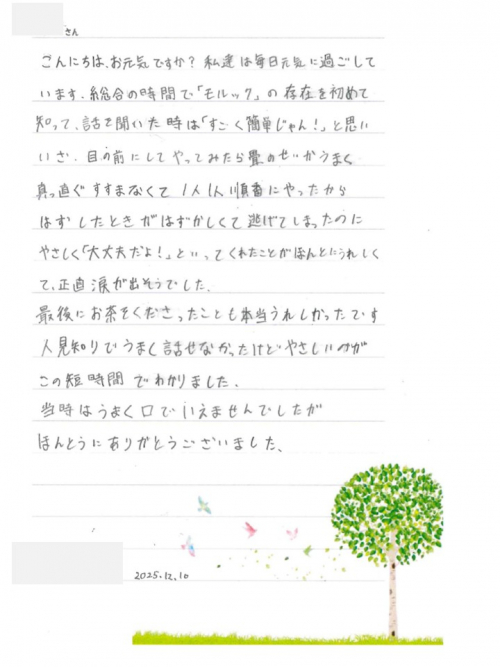 さん
こんにちは、お元気ですか？私達は毎日元気に過ごして
います。総合の時間で「モルック」の存在を初めて
知って、話を聞いた時は「すごく簡単じゃん！」と思い
いざ、目の前にしてやってみたら畳のせいかうまく
真っ直ぐすすまなくて1人1人順番にやったから
はずしたときがはずかしくて逃げてしまったのに
やさしく「大丈夫だよ！」といってくれたことがほんとにうれしく
て、正直涙が出そうでした。
最後にお茶をくださったことも本当うれしかったです
人見知りでうまく話せなかったけどやさしいのが
この短時間でわかりました。
当時はうまく口でいえませんでしたが
ほんとうにありがとうございました、
2025.12.10